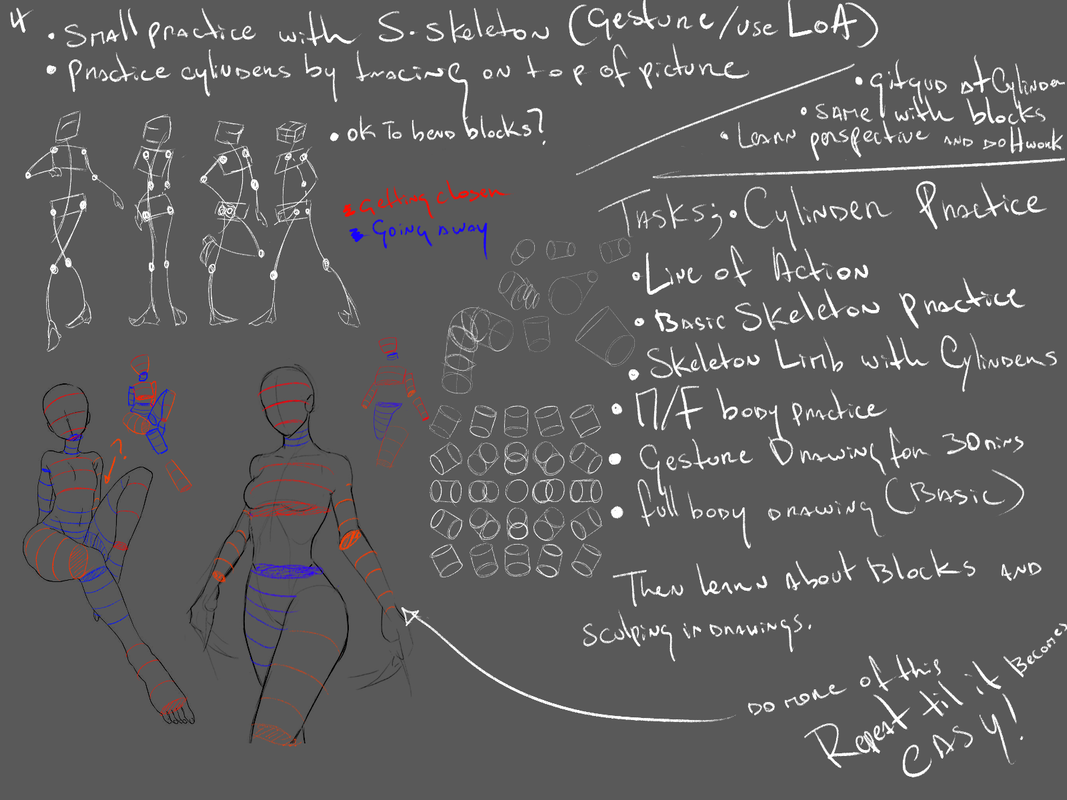 4
• Small practice with S. Skeleton (Gesture/use LoA)
• practice cylinders by tracing on top of picture
• ok to bend blocks?
• git gud at Cylinder
• Same with blocks
• Learn perspective and do Hwork
Getting closer
Going away
Tasks; • Cylinder Practice
• Line of Action
• Basic Skeleton practice
• Skeleton Limb with Cylinders
• M/F body practice
• Gesture Drawing for 30 mins
• full body drawing (Basic)
?
Then learn about Blocks and
sculping in drawings.
Do more of this
Repeat til it Becomes
EASY!